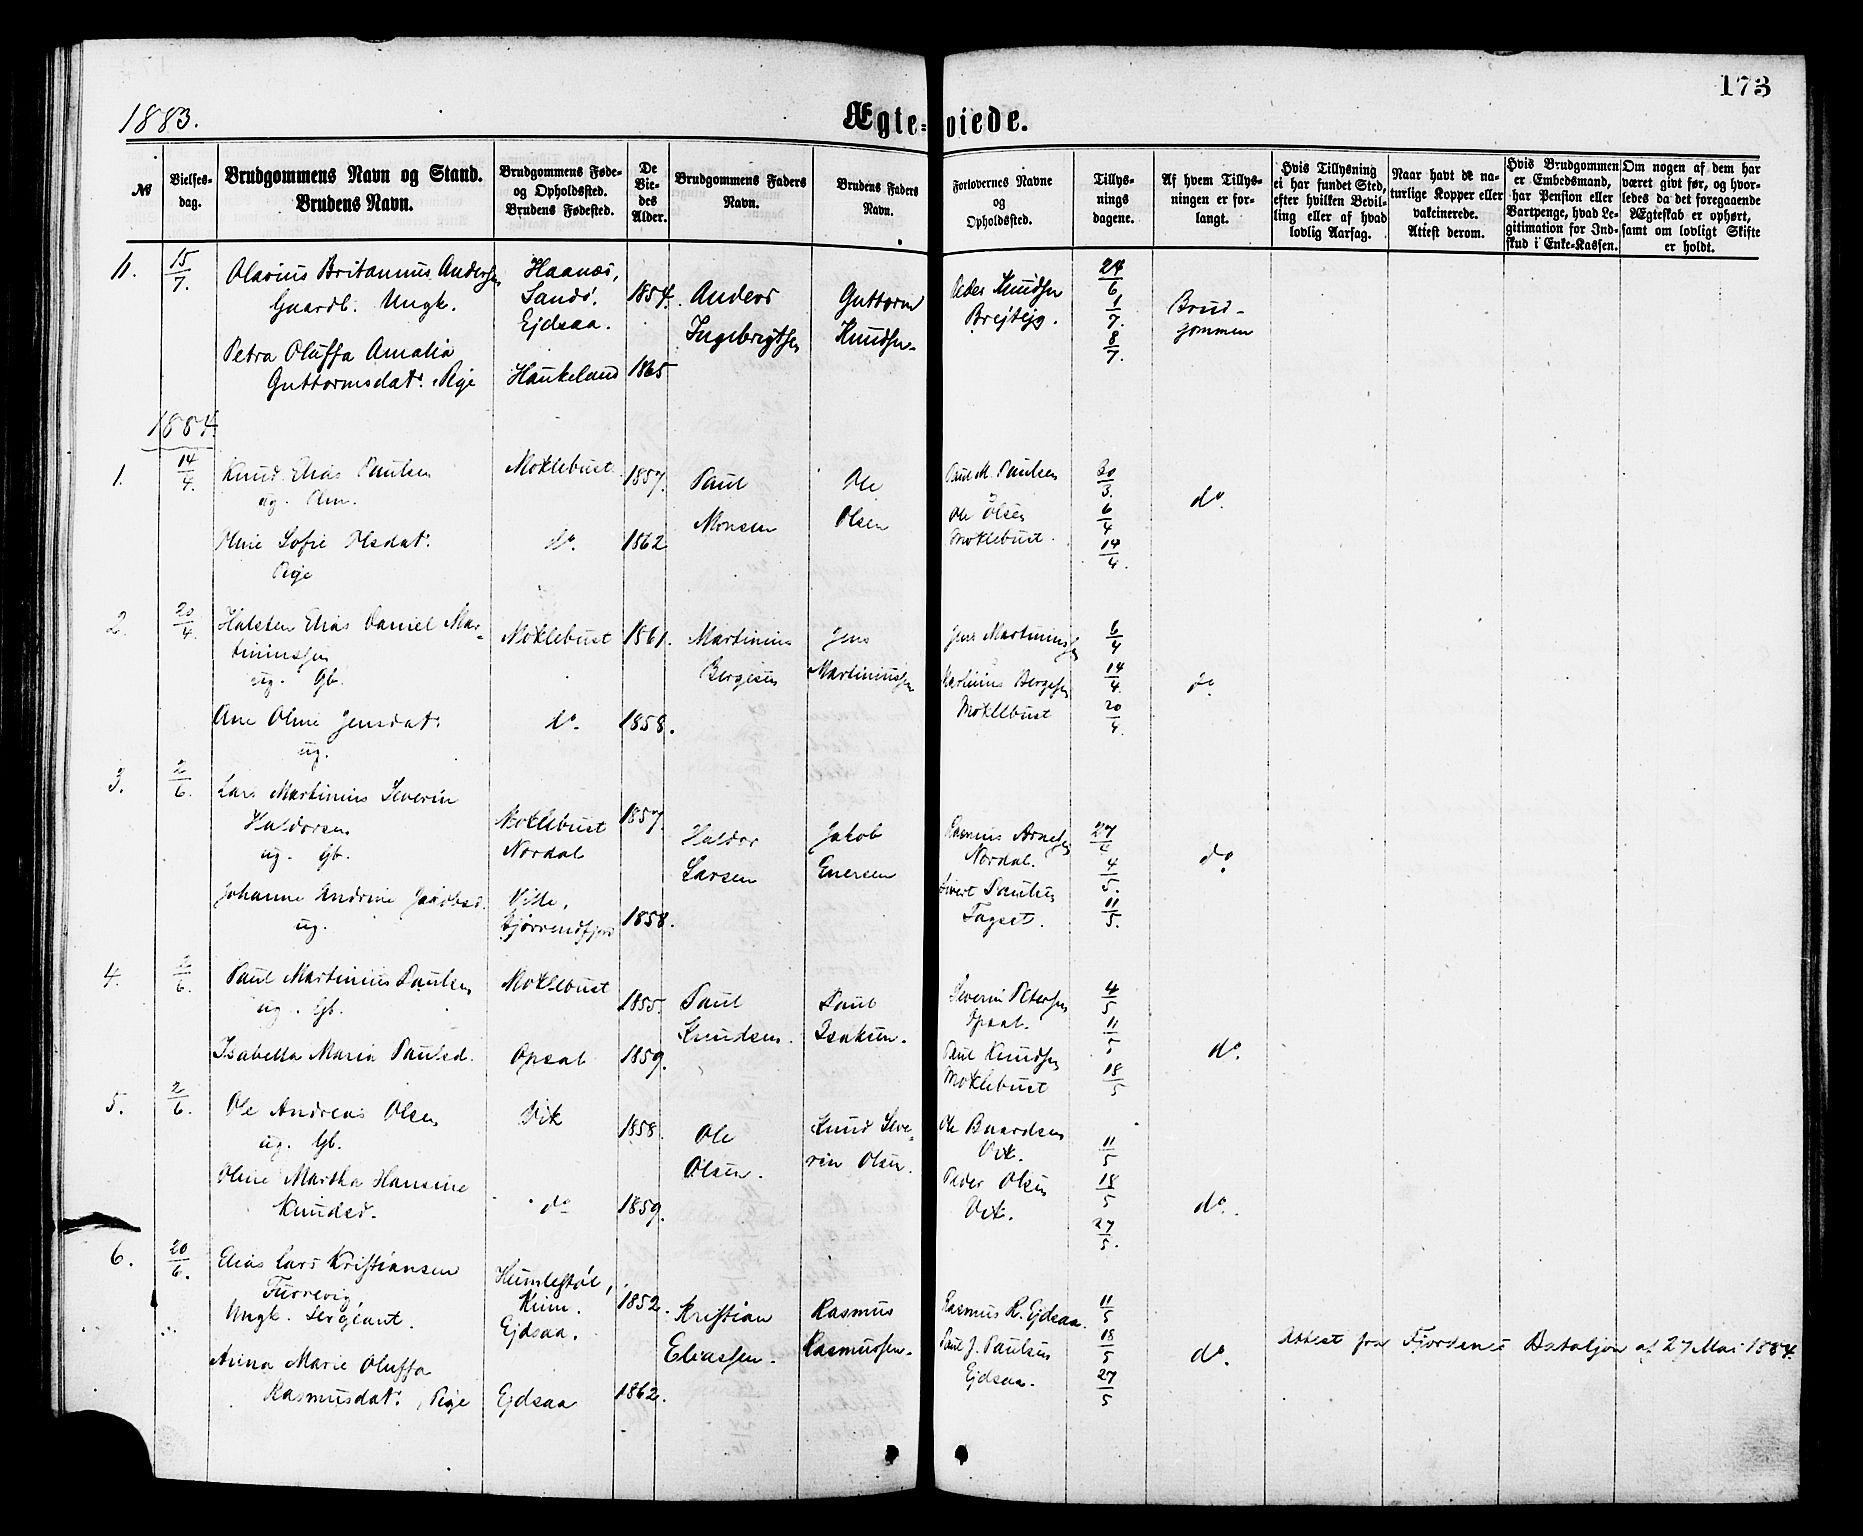 173
1883.
Ægte-viede.
№
Vielses-
dag.
Brudgommens Navn og Stand.
Brudens Navn.
Brudgommens Føde-
og Opholdssted.
Brudens Fødested.
De
Vie-
des
Alder.
Brudgommens Faders
Navn.
Brudens Faders
Navn.
Forlovernes Navne
og
Opholdssted.
Tillys-
nings
dagene.
Af hvem Tillys-
ningen er for-
langt.
Hvis Tillysning
ei har fundet Sted,
efter hvilken Bevil-
ling eller af hvad
lovlig Aarsag.
Naar havt de na-
turlige Kopper eller
vakcinerede.
Attest derom.
Hvis Brudgommen
er Embedsmand,
har Pension eller
Vartpenge, hvad Le-
gitimation for Ind-
skud i Enke-Kassen.
Om nogen af dem har
været givt før, og hvor-
ledes da det foregaaende
Ægteskab er ophørt,
samt om lovligt Skifte
er holdt.
11.
15/7.
Olavius Britannus Andersen
Gaardb. Ungk.
Petra Oluffa Amalia
Guttormsdatr. Pige
Haanæs,
Sandø.
Ejdsaa.
Haukeland
1854.
1865
Anders
Ingebrigtsen
Guttorm
Knudsen
Peder Knudsen
Brejtejg.
24/6
1/7.
8/7.
Brud-
gommen
1884.
1.
14/4.
Knud Elias Paulsen
ug.
Oline Sofie Olsdatr.
Pige
Moklebust
do.
1857.
1862
Paul
Monsen
Ole
Olsen
Paul M. Paulsen
Ole Olsen
Moklebust.
30/3.
6/4
14/4.
do.
2.
20/4.
Halsten Elias Daniel Mar-
tinussen
ug. Gb.
Ane Oline Jensdatr.
ug.
Moklebust
do.
1861.
1858.
Martinus
Bergesen
Jens
Martinussen
Jens Martinussen
Martinus Bergesen
Moklebust
6/4
14/4.
20/4.
do.
3.
2/6.
Lars Martinus Severin
Haldorsen
ug. Gb.
Johanne Andrine Jakobsd.
ug.
Moklebust
Nordal
1857.
1858.
Haldor
Larsen
Jakob
Enersen
Rasmus Arnesen
Nordal.
Sivert Paulsen
27/4
4/5.
11/5.
do.
4.
2/6.
Paul Martinus Paulsen
ug. Gb.
Isabella Maria Paulsd.
Moklebust
Opsal
1855.
1859.
Paul
Knudsen.
Paul
Isaksen.
Severin Petersen
Opsal.
Paul Knudsen
Moklebust
4/5
11/5
18/5
do.
5.
2/6.
Ole Andreas Olsen
ug. Gb.
Oline Martha Hansine
Knudsd.
Vik
do
1858.
1859.
Ole
Olsen.
Knud Seve-
rin Olsen.
Ole Baardsen
Vik.
Peder Olsen
Vik.
11/5
18/5
27/5.
do.
6.
20/6.
Elias Lars Kristiansen
Furrevig
Ungk. Sergeant.
Anna Marie Oluffa
Rasmusdatr. Pige
Ejdsaa.
Ejdsaa
1852.
1862.
Kristian
Eliassen.
Rasmus
Rasmussen.
Rasmus R. Ejdsaa.
Paul J. Paulsen
Ejdsaa.
11/5
18/5
27/5
do.
Attest fra Fjordenes Bataljon af 27 Mai 1884.